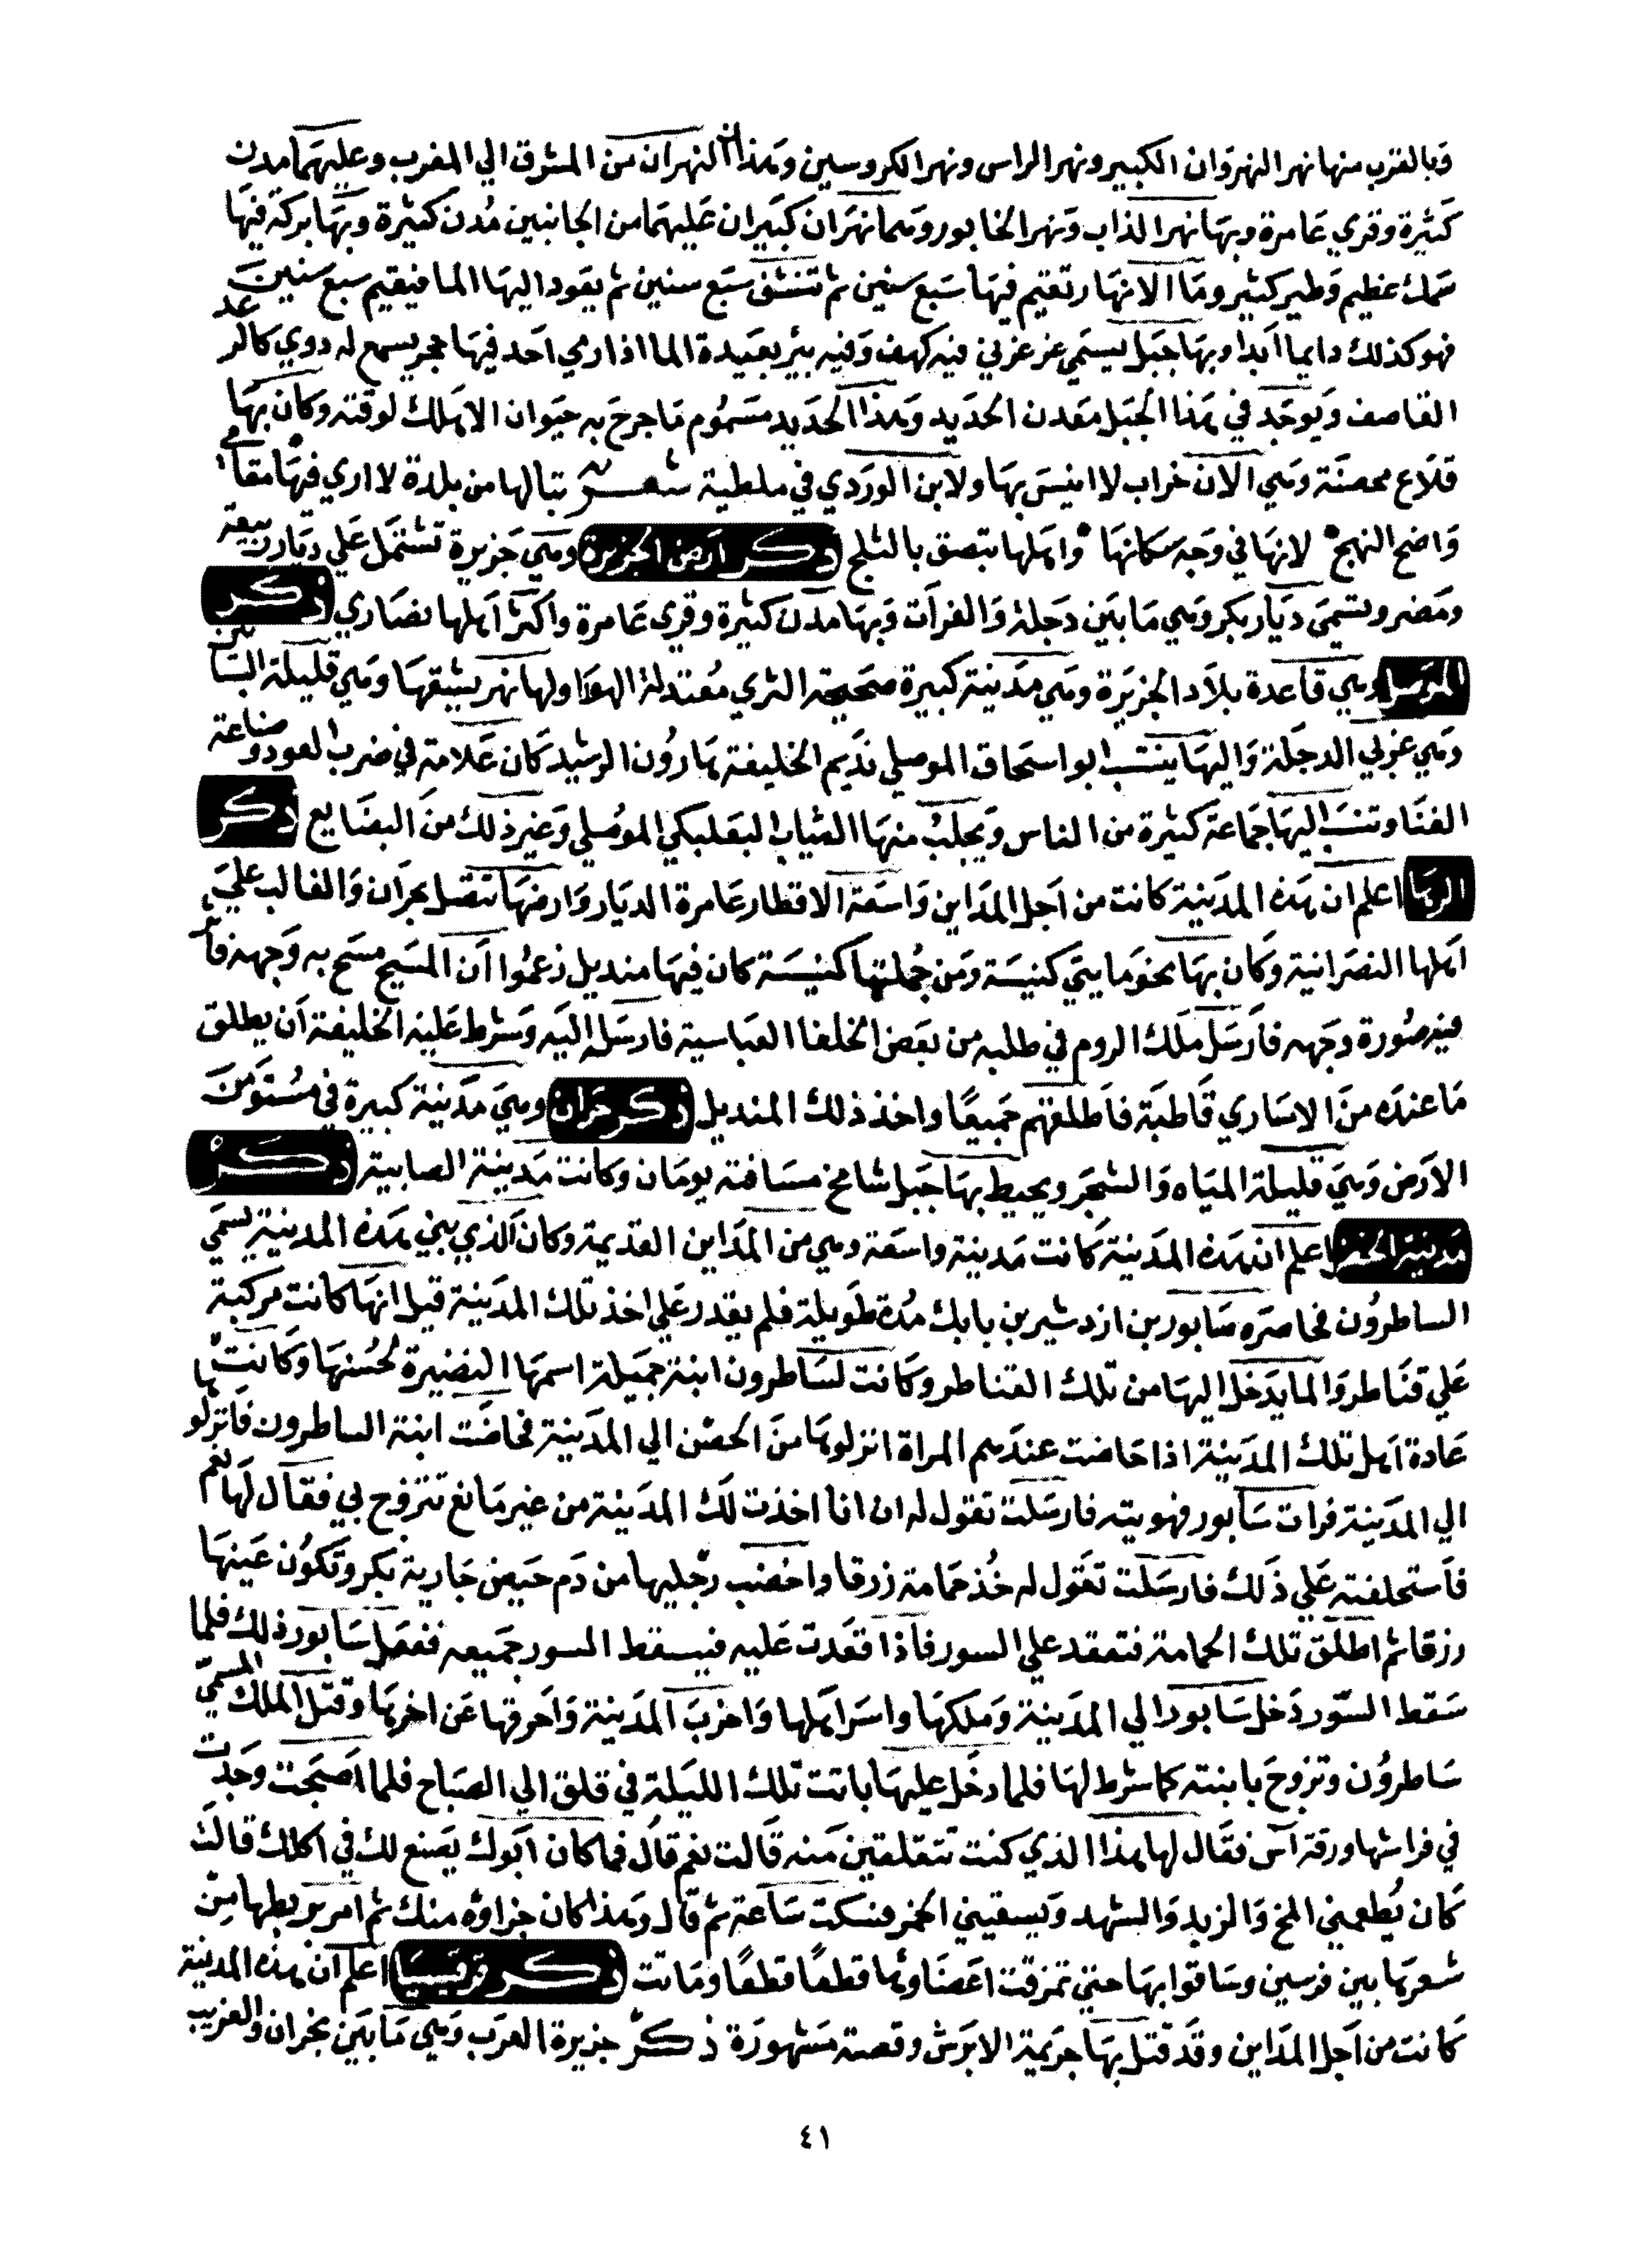 وبالقرب منها نهر النهروان الكبير ونهر الراس ونهر الكروسين وهذان النهران من المشرق الي المغرب وعليهما مدن
كثيرة وقري عامرة وبها نهر الذاب ونهر الخابور وهما نهران كبيران عليهما من الجانبين مدن كثيرة وبها بركة فيها
سمك عظيم وطير كثير وما الانهار تقيم فيها سبع سنين ثم تنشف سبع سنين ثم يعود اليها الما فيقيم سبع سنين
فهو كذلك دايما ابدا وبها جبل يسمي عزعزني فيه كهف وفيه بير بعيدة الما اذا ري احد فيها حجر يسمع له دوي كالرعد
القاصف ويوجد في هذا الجبل معدن الحديد وهذا الحديد مسموم ما جرح به حيوان الا هلك لوقته وكان بها
قلاع محصنة وهي الان خراب لا انيس بها ولابن الوردي في ملطية شعر تبا لها من بلدة لا اري فيها مقامي
واضح النهج لانها في وجه سكانها واهلها تبصق بالثلج ذكر ارض الجزيرة وهي جزيرة تشتمل علي ديار ربيعة
ومضر وتسمي ديار بكر وهي ما بين دجلة والفرات وبها مدن كثيرة وقري عامرة واكثر اهلها نصاري ذكر
الموصل وهي قاعدة بلاد الجزيرة وهي مدينة كبيرة صحيحة الثري معتدلة الهوا ولها نهر يشقها وهي قليلة البساتين
وهي غربي الدجلة واليها ينتسب ابو اسحاق الموصلي نديم الخليفة هارون الرشيد كان علامة في ضرب العود وصناعة
الغنا وتنسب اليها جماعة كثيرة من الناس ويجلب منها الثياب البعلبكي الموصلي وغير ذلك من البضايع ذكر
الرها اعلم ان هذه المدينة كانت من اجل المداين واسعة الاقطار عامرة الديار وارضها تتصل بحران والغالب علي
اهلها النصرانية وكان بها نحو مايتي كنيسة ومن جملتها كنيسة كان فيها منديل زعموا ان المسيح مسح به وجهه فأثر
فيه صورة وجهه فارسل ملك الروم في طلبه من بعض الخلفا العباسية فارسله اليه وشرط عليه الخليفة ان يطلق
ما عنده من الاساري قاطبة فاطلقهم جميعا واخذ ذلك المنديل ذكر حران وهي مدينة كبيرة في مستو من
الارض وهي قليلة المياه والشجر ويحيط بها جبل شامخ مسافته يومان وكانت مدينة الصابية ذكر
مدينة الحضر اعلم ان هذه المدينة كانت مدينة واسعة وهي من المداين القديمة وكان الذي بني هذه المدينة يسمي
الساطرون فحاصره سابور بن ازدشير بن بابك مدة طويلة فلم يقدر علي اخذ تلك المدينة قيل انها كانت مركبة
علي قناطر والما يدخل اليها من تلك القناطر وكانت لساطرون ابنة جميلة اسمها النضيرة لحسنها وكانت
عادة اهل تلك المدينة اذا حاضت عندهم المراة انزلوها من الحصن الي المدينة فحاضت ابنة الساطرون فانزلوها
الي المدينة فرات سابور فهويته فارسلت تقول له ان انا اخذت لك المدينة من غير مانع تتزوج بي فقال لها نعم
فاستحلفته علي ذلك فارسلت تقول له خذ حمامة زرقا واخضب رجليها من دم حيض جارية بكر وتكون عينها
زرقا ثم اطلق تلك الحمامة فتقعد علي السور فاذا قعدت عليه فيسقط السور جميعه ففعل سابور ذلك فلما
سقط السور دخل سابور الي المدينة وملكها واسر اهلها واخرب المدينة واحرقها عن اخرها وقتل الملك المسمي
ساطرون وتزوج بابنته كما شرط لها فلما دخل عليها باتت تلك الليلة في قلق الي الصباح فلما اصبحت وجدت
في فراشها ورقة آس فقال لها هذا الذي كنت تتقلقين منه قالت نعم قال فما كان ابوك يصنع لك في اكلك قالت
كان يطعمني المخ والزبد والشهد ويسقيني الخمر فسكت ساعة ثم قال وهذا كان جزاؤه منك ثم امر بربطها من
شعرها بين فرسين وساقوا بها حتي تمزقت اعضاوها قطعا قطعا وماتت ذكر قرقيسيا اعلم ان هذه المدينة
كانت من اجل المداين وقد قتل بها جزيمة الابرش وقصته مشهورة ذكر جزيرة العرب وهي ما بين نجران والعزيب
٤١